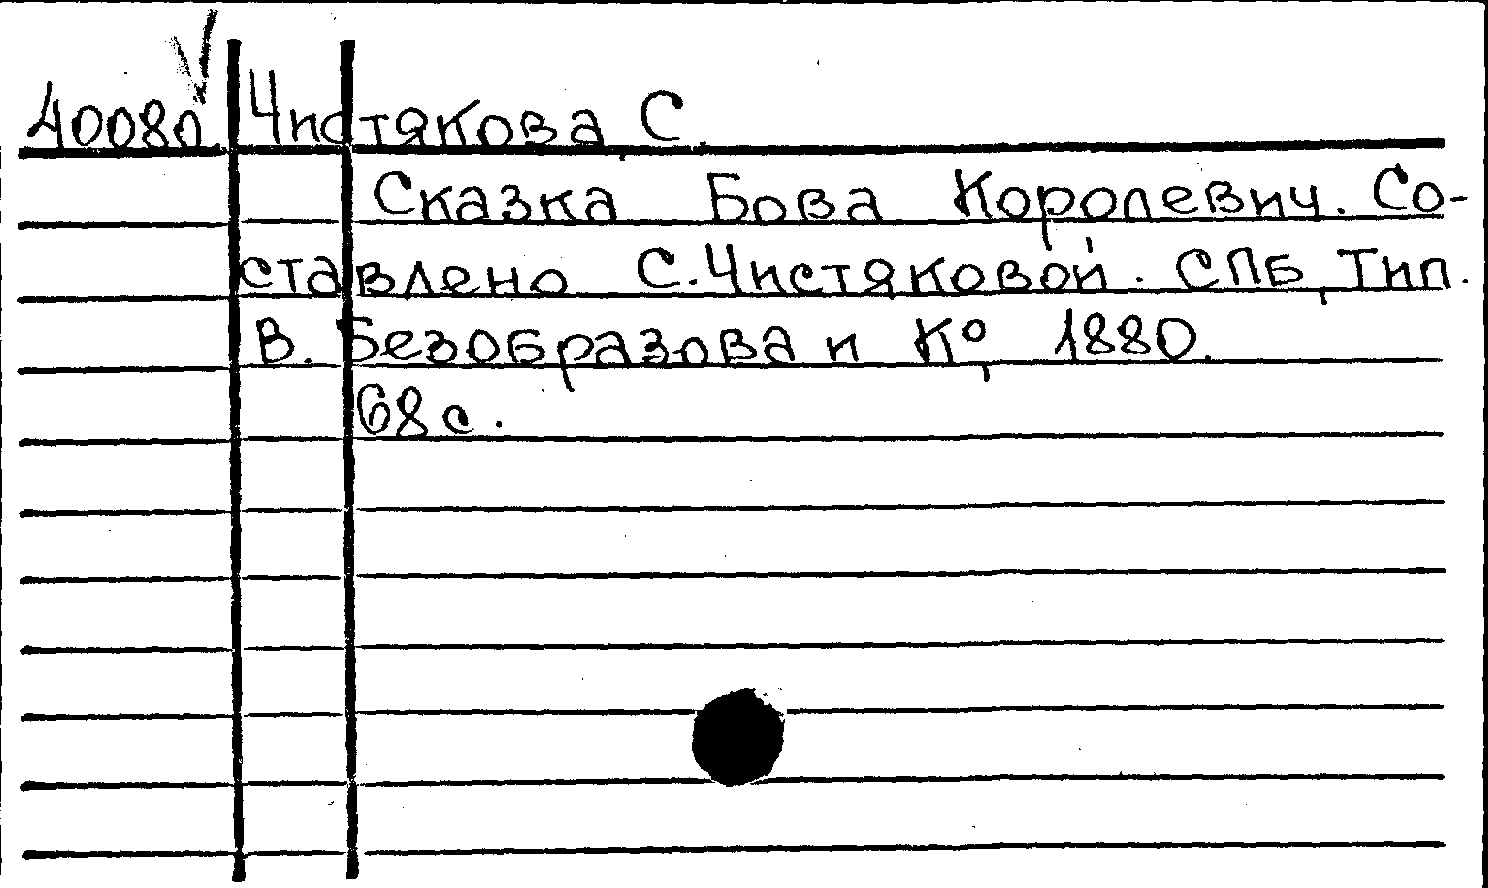 40080 Чистякова, С.
Сказка Бова Королевич. Со-
ставлено С. Чистяковой. СПБ, Тип.
В. Безобразова и К°, 1880.
68 с.